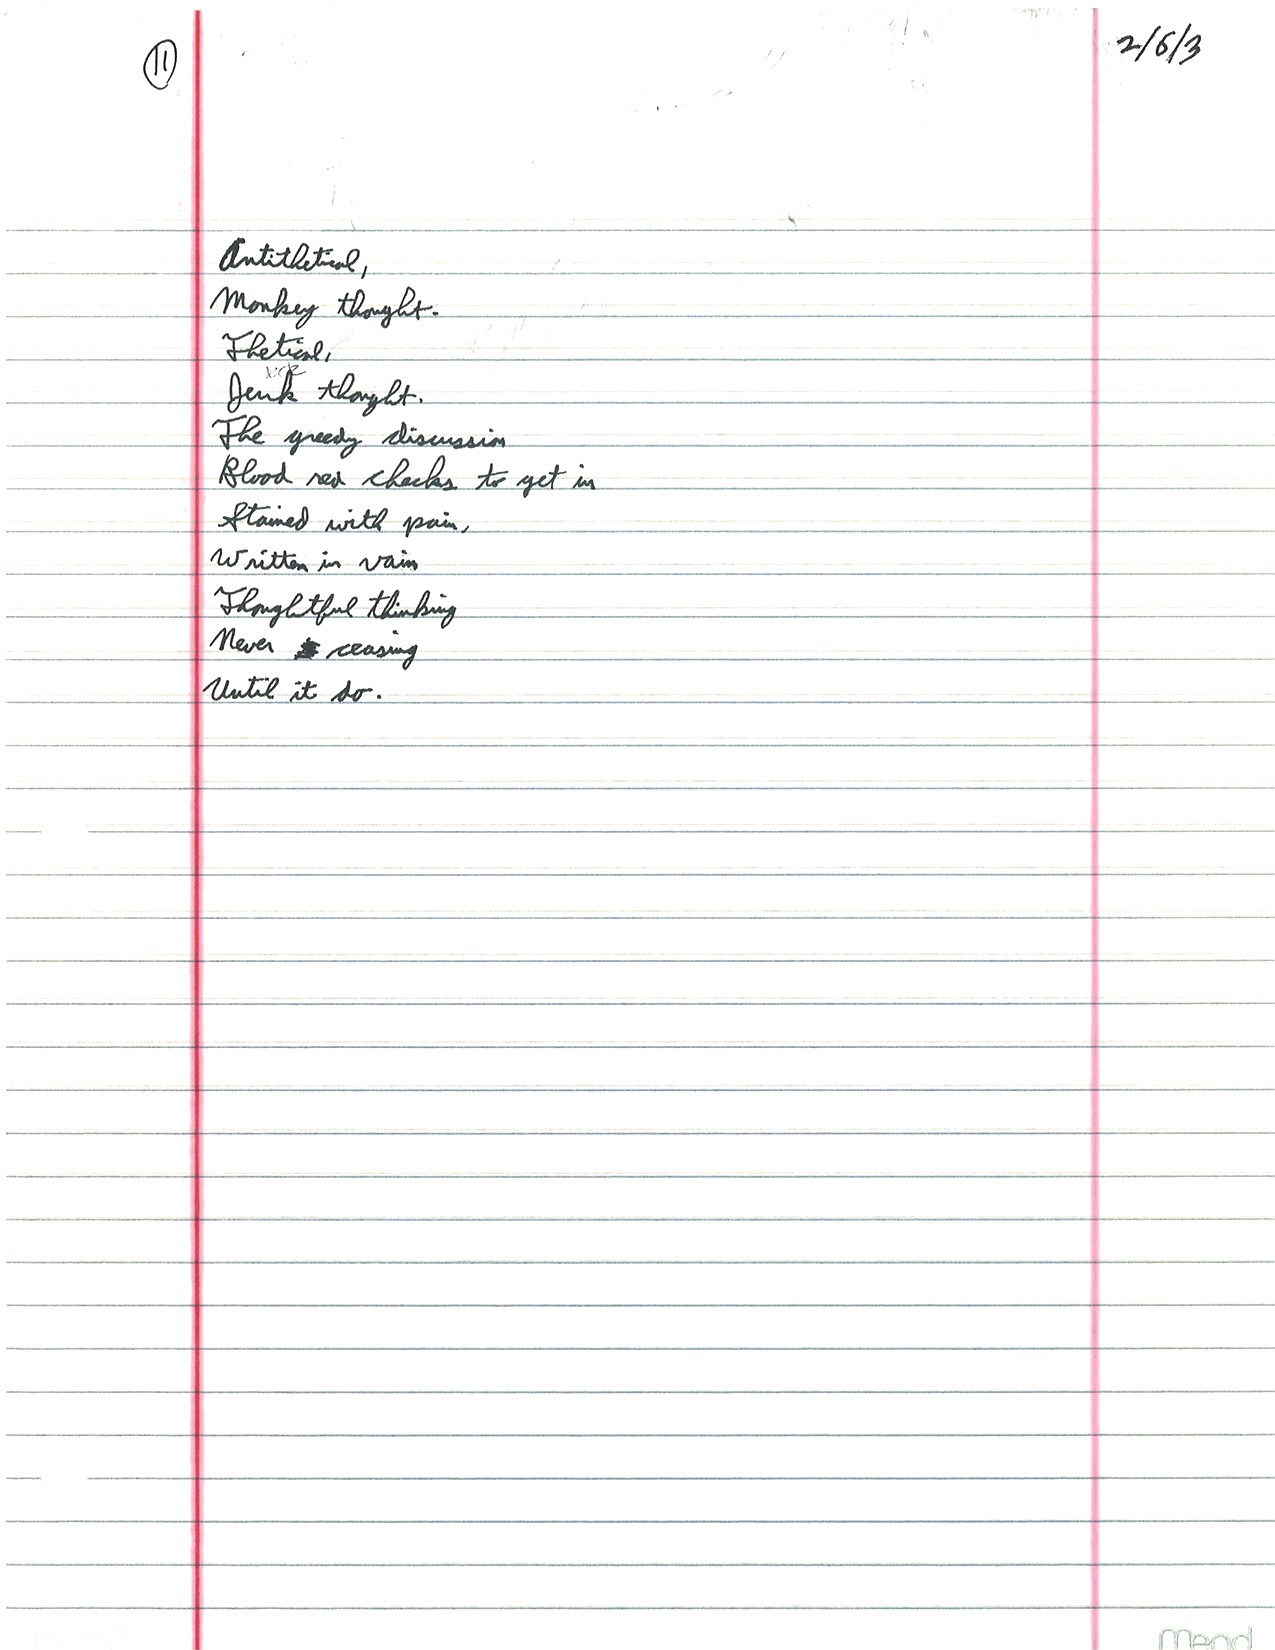 11
2/6/3
Antithetical,
Monkey thought.
Thetical,
Jerk thought.
The greedy discussion
Blood red checks to get in
Stained with pain,
Written in vain
Thoughtful thinking
Never ceasing
Until it do.
Mead